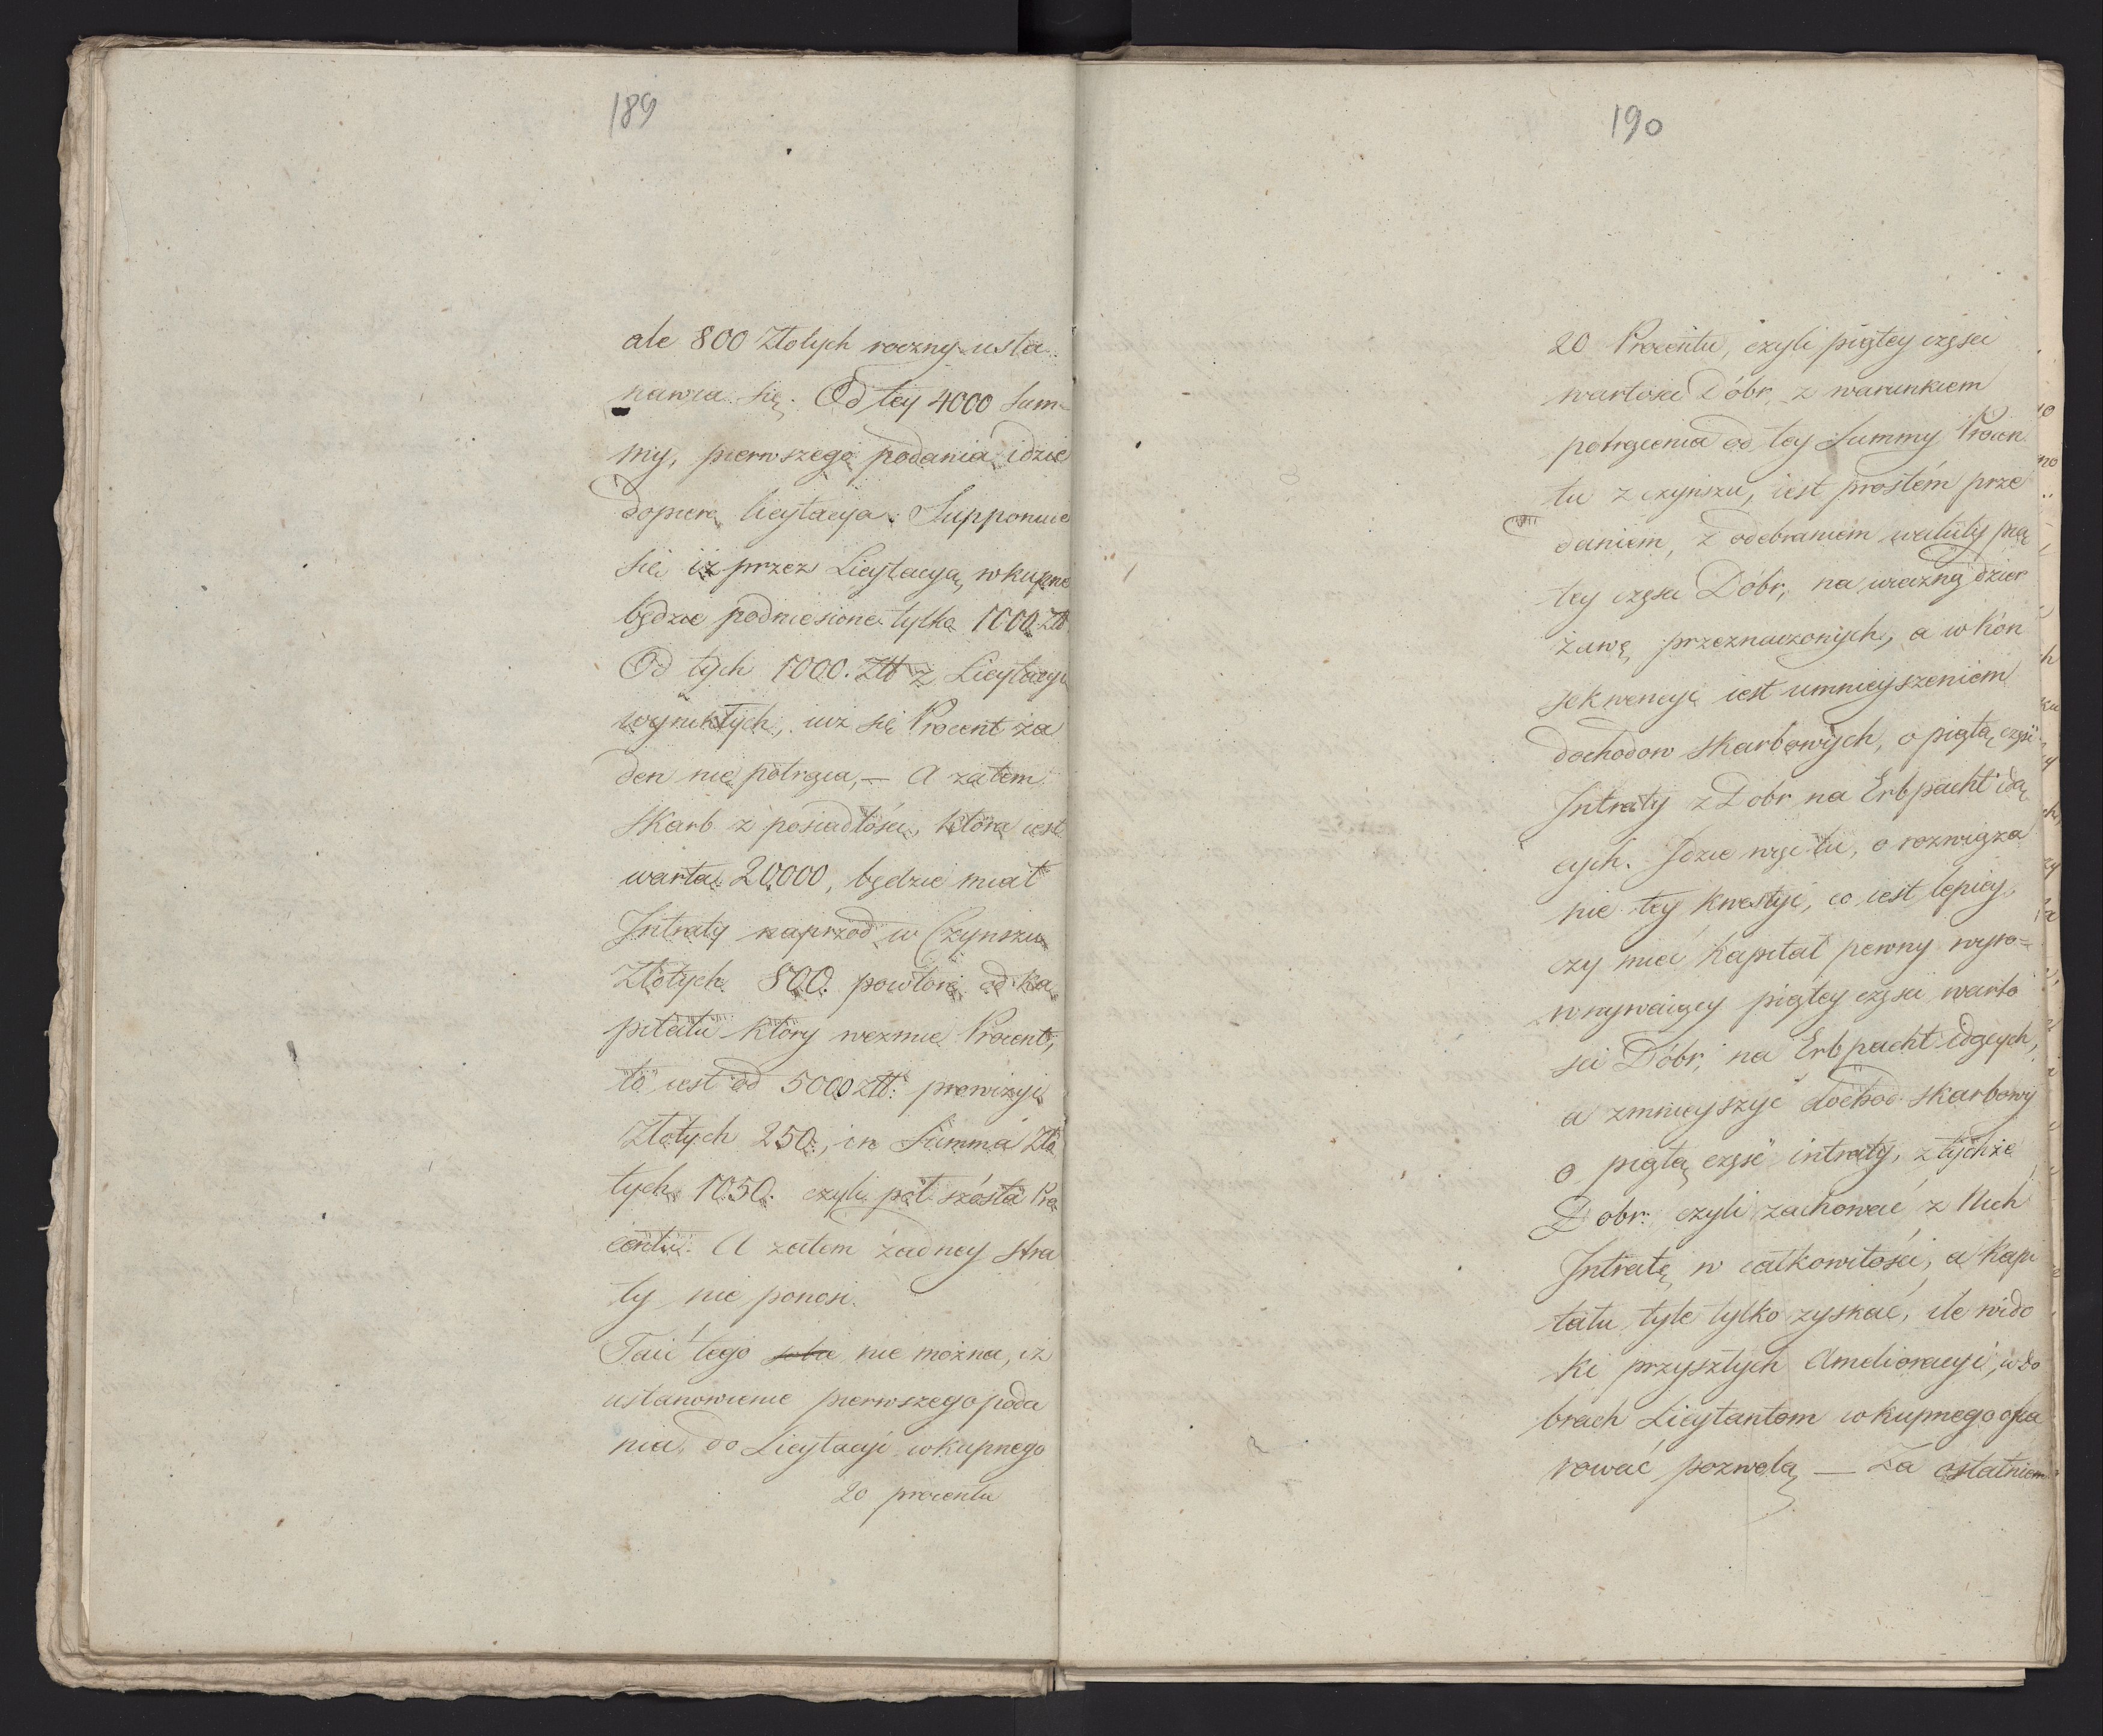 189
ale 800 Złotych roczny usta
nawia się. Od tey 4000 Sum-
my, pierwszego podania idzie
dopiero licytacya. Supponuie
się iż przez Licytacyą wkupne
będzie podniesione tylko 1000 Złł
Od tych 1000. Złł z Licytacyi
wynikłych, iuż się Procent ża
den nie potrąca, — A zatem
Skarb z posiadłości, która iest
warta 20000, będzie miał
Intraty naprzód w Czynszu
Złotych 800. powtóre od ka
pitału który wezmie Procent,
to iest od 5000 złł: prowizyi
Złotych 250., in Summa Zło
tych 1050. czyli pół szósta Pro
centu. A zatem żadney stra
ty nie ponosi.
Taić tego sobie nie można, iż
ustanowienie pierwszego poda
nia, do Licytacyi wkupnego
20 procentu
190
20 Procentu, czyli piątey części
wartości Dóbr, z warunkiem
potrącenia od tey Summy Procen
tu z czynszu, iest prostém prze
daniem, z odebraniem waluty pią
tey części Dóbr, na wieczną dzier
żawę przeznaczonych, a w kon
sekwencyi iest umnieyszeniem
dochodow skarbowych, o piątą część
Intraty z Dobr na Erbpacht idą
cych. Idzie więc tu, o rozwiąza
nie tey kwestyi, co iest lepiey,
czy mieć kapitał pewny wyro-
wnywaiący piątey części warto
ści Dóbr, na Erbpacht idących,
a zmnieyszyć dochod skarbowy
o piątą część intraty, z tychże
Dobr: czyli zachować z Nich
Intratę w całkowitości, a kapi
tału tyle tylko zyskać, ile wido
ki przyszłych Amelioracyi, w do
brach Licytantom wkupnego ofia
rować pozwolą — Za ostatniem